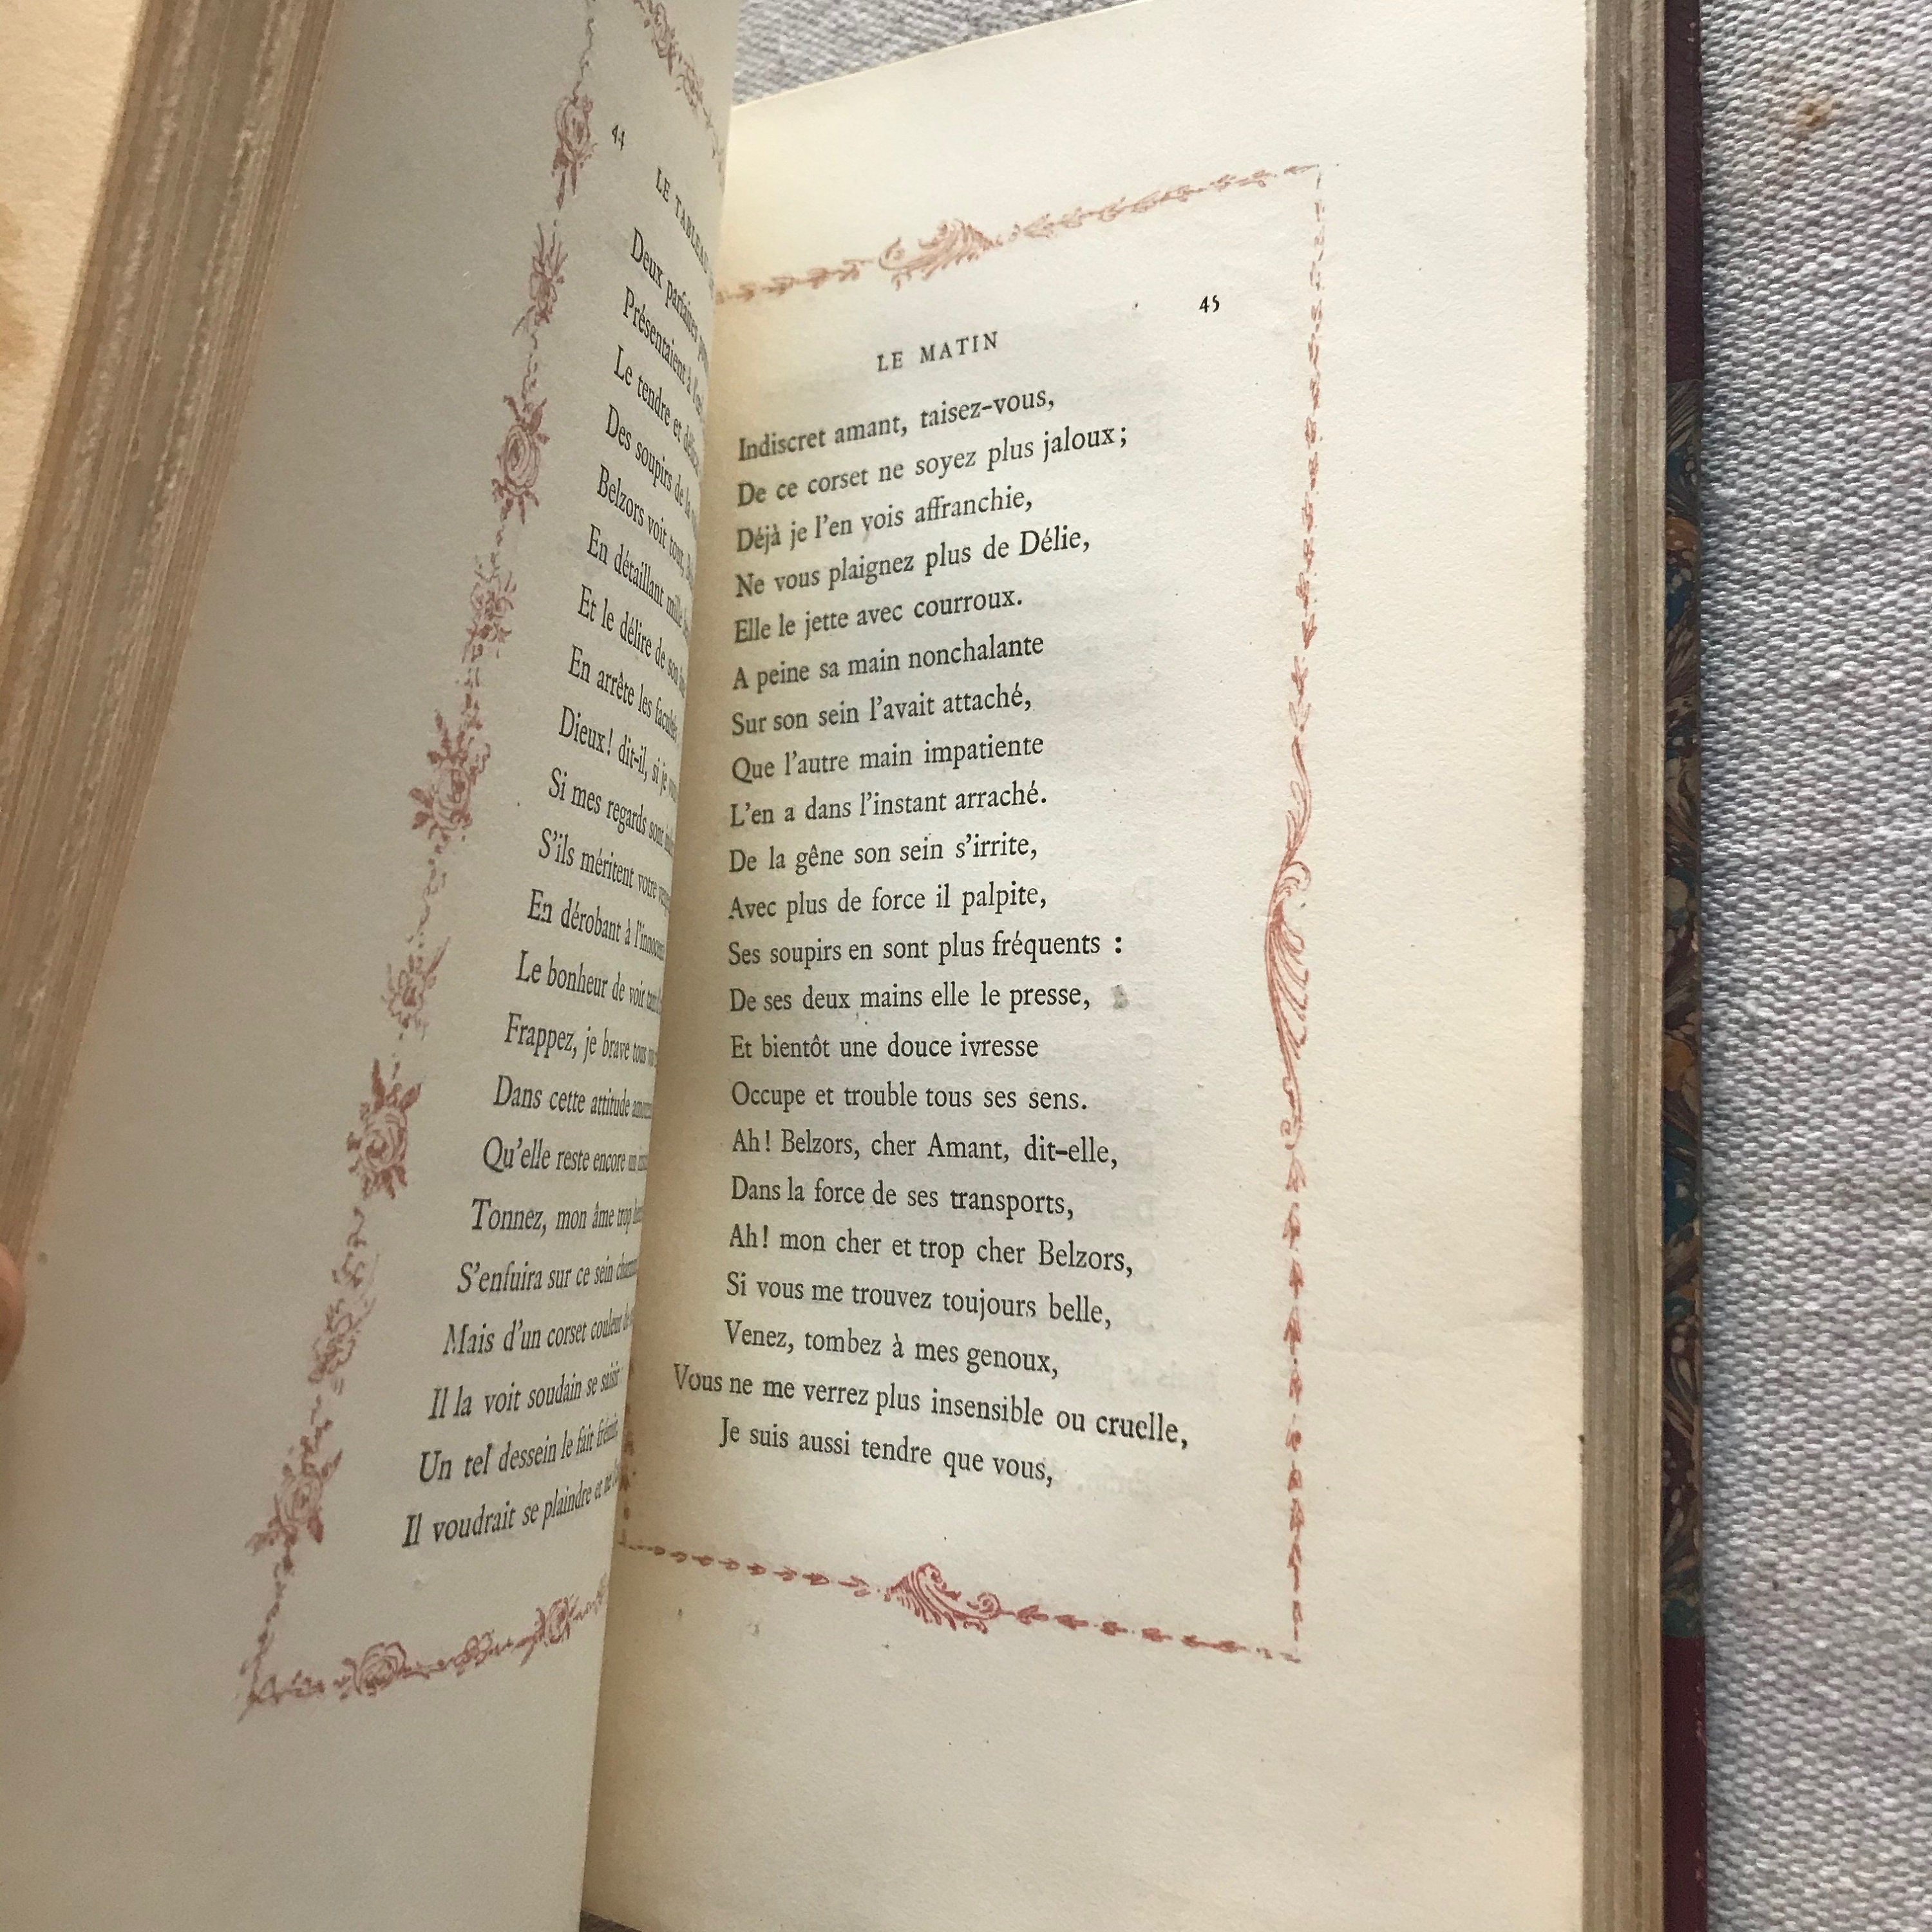 44
LE TABLEAU
Deux parfaites
Présentaient à
Le tendre et
Des soupirs de la
Belzors voit tout,
En détaillant mille
Et le délire de son
En arrête les facultés
Dieux! dit-il, si je
Si mes regards sont
S'ils méritent votre
En dérobant à
Le bonheur de voir
Frappez, je brave tous
Dans cette attitude
Qu'elle reste encore un
Tonnez, mon âme trop
S'enfuira sur ce sein
Mais d'un corset couleur de
Il la voit soudain se saisir
Un tel dessein le fait frémir,
Il voudrait se plaindre et ne
45
LE MATIN
Indiscret amant, taisez-vous,
De ce corset ne soyez plus jaloux;
Déjà je l'en vois affranchie,
Ne vous plaignez plus de Délie,
Elle le jette avec courroux.
A peine sa main nonchalante
Sur son sein l'avait attaché,
Que l'autre main impatiente
L'en a dans l'instant arraché.
De la gêne son sein s'irrite,
Avec plus de force il palpite,
Ses soupirs en sont plus fréquents :
De ses deux mains elle le presse,
Et bientôt une douce ivresse
Occupe et trouble tous ses sens.
Ah! Belzors, cher Amant, dit-elle,
Dans la force de ses transports,
Ah! mon cher et trop cher Belzors,
Si vous me trouvez toujours belle,
Venez, tombez à mes genoux,
Vous ne me verrez plus insensible ou cruelle,
Je suis aussi tendre que vous,